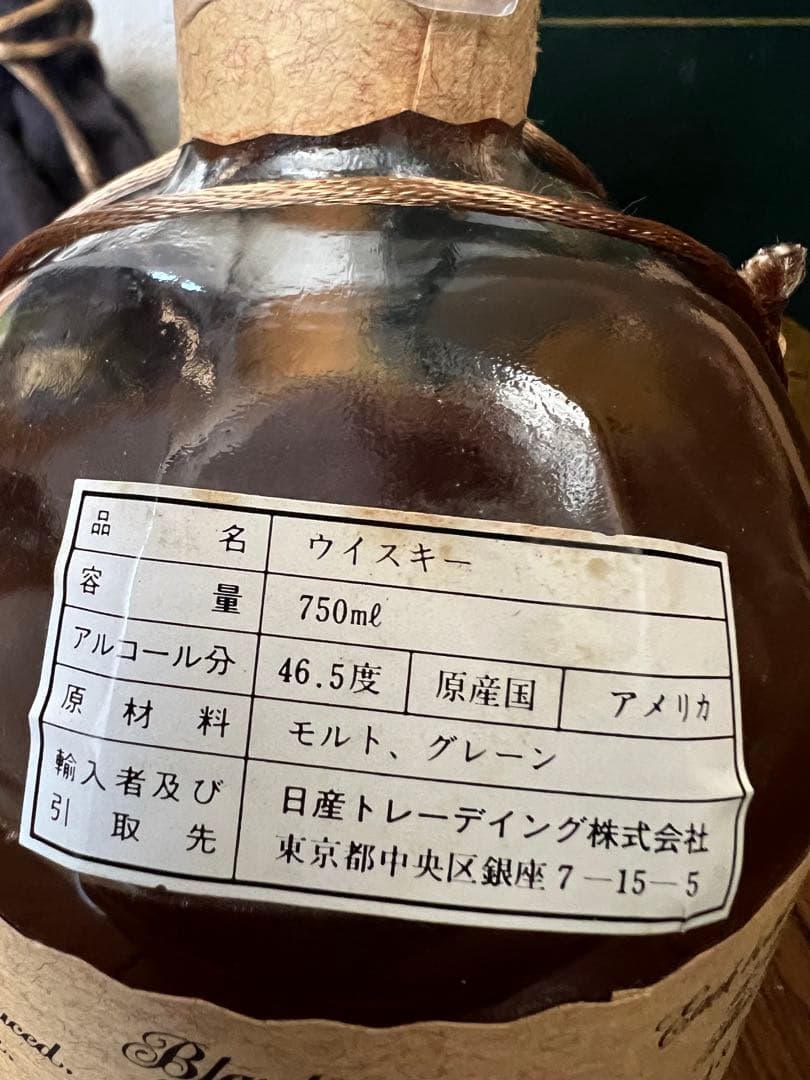 品名 ウイスキー
容量 750mℓ
アルコール分 46.5度 原産国 アメリカ
原材料 モルト、グレーン
輸入者及び引取先 日産トレーデイング株式会社
東京都中央区銀座7-15-5